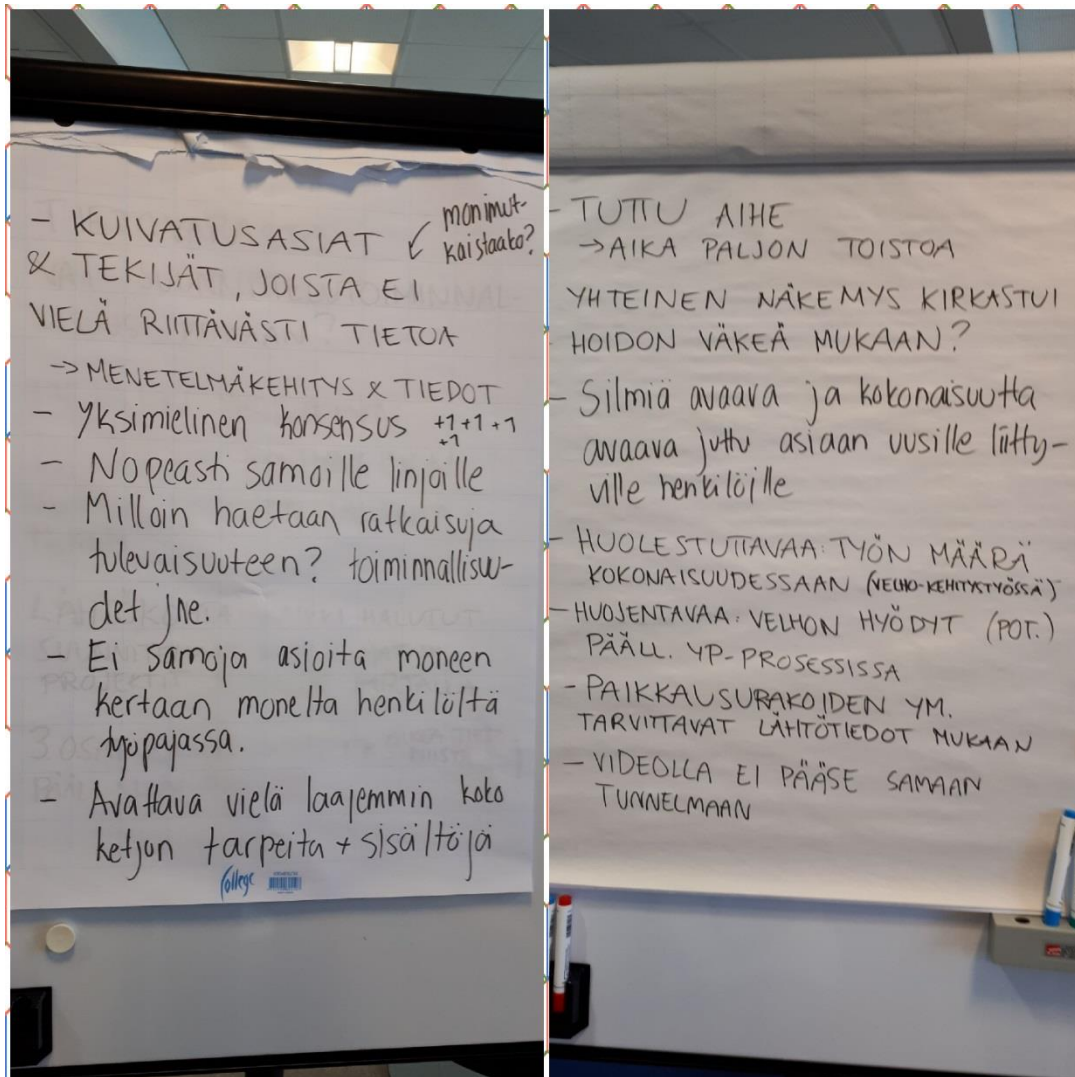 - KUIVATUSASIAT ↙ monimut-
kaistaako?
& TEKIJÄT, JOISTA EI
VIELÄ RIITTÄVÄSTI TIETOA
-> MENETELMÄKEHITYS & TIEDOT
- Yksimielinen konsensus +1 +1 +1
+1
- Nopeasti samoille linjoille
- Milloin haetaan ratkaisuja
tulevaisuuteen? toiminnallisuu-
det jne.
- Ei samoja asioita moneen
kertaan monelta henkilöltä
työpajassa.
- Avattava vielä laajemmin koko
ketjun tarpeita + sisältöjä
College
- TUTTU AIHE
-> AIKA PALJON TOISTOA
- YHTEINEN NÄKEMYS KIRKASTUI
- HOIDON VÄKEÄ MUKAAN?
- Silmiä avaava ja kokonaisuutta
avaava juttu asiaan uusille liitty-
ville henkilöille
- HUOLESTUTTAVAA: TYÖN MÄÄRÄ
KOKONAISUUDESSAAN (VELHO-KEHITYSTYÖSSÄ)
- HUOJENTAVAA: VELHON HYÖDYT (POT.)
PÄÄLL. YP-PROSESSISSA
- PAIKKAUSURAKOIDEN YM.
TARVITTAVAT LÄHTÖTIEDOT MUKAAN
- VIDEOLLA EI PÄÄSE SAMAAN
TUNNELMAAN